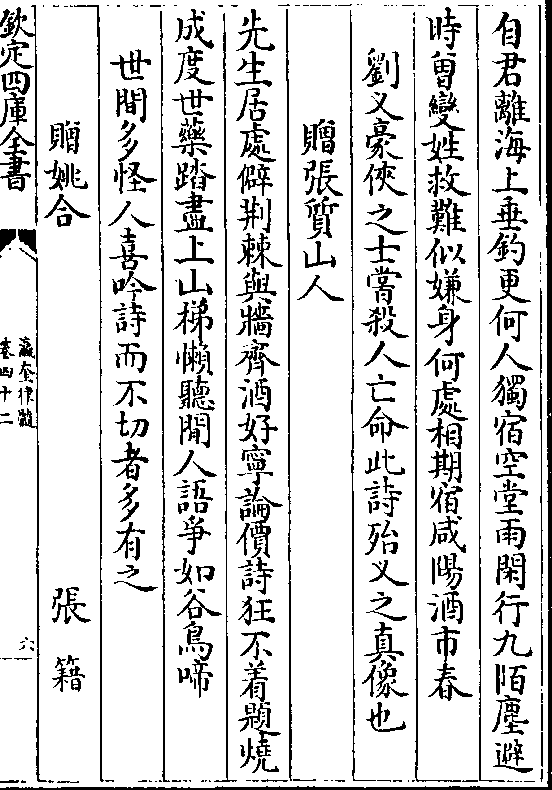 自君離海上垂釣更何人獨宿空堂雨閑行九陌塵避
時曾變姓救難似嫌身何處相期宿咸陽酒市春
劉乂豪俠之士嘗殺人亡命此詩殆乂之真像也
贈張質山人
先生居處僻荆棘與牆齊酒好寧論價詩狂不着題燒
成度世藥踏盡上山梯懶聽閒人語爭如谷鳥啼
世間多怪人喜吟詩而不切者多有之
贈姚合
張籍
欽定四庫全書
瀛奎律髓
卷四十二
六